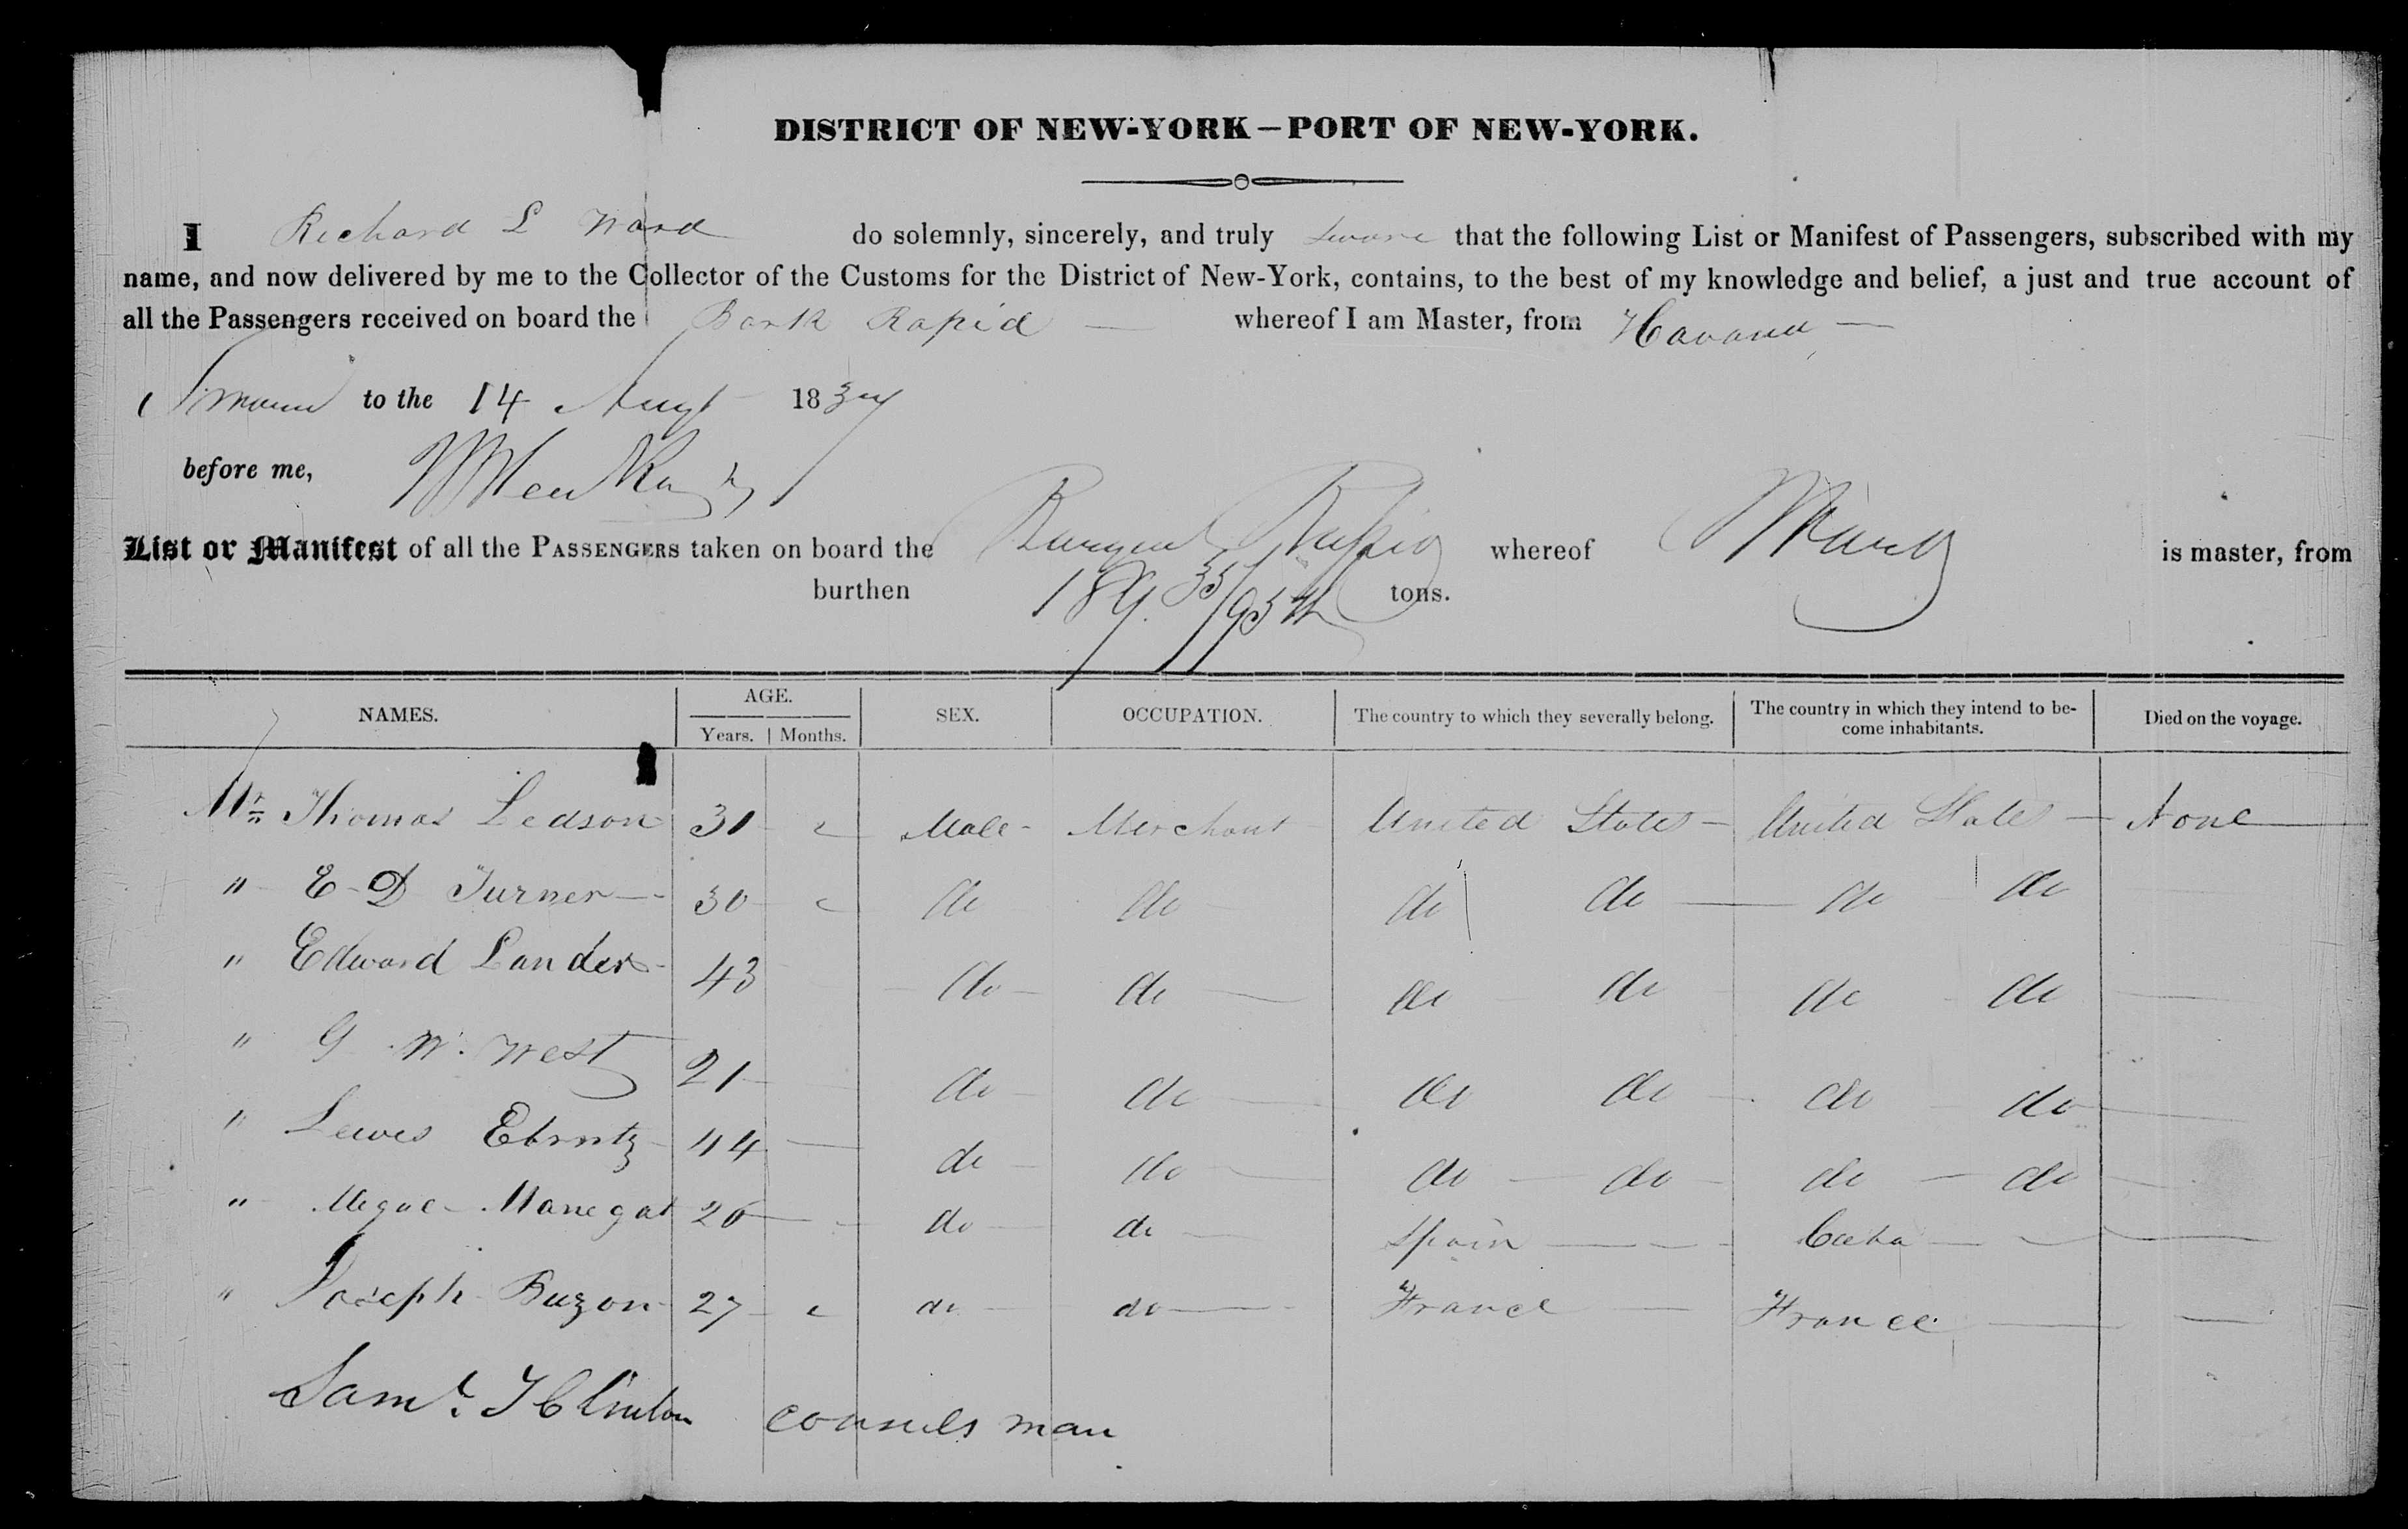 DISTRICT OF NEW-YORK—PORT OF NEW-YORK.
I Richard L Ward do solemnly, sincerely, and truly Sware that the following List or Manifest of Passengers, subscribed with my
name, and now delivered by me to the Collector of the Customs for the District of New-York, contains, to the best of my knowledge and belief, a just and true account of
all the Passengers received on board the Bark Rapid — whereof I am Master, from Havana —
to the 14 Augt 18
before me,
List or Manifest of all the PASSENGERS taken on board the Rapid whereof Ward is master, from
burthen 189. 35/95th tons.
NAMES. AGE. SEX. OCCUPATION. The country to which they severally belong. The country in which they intend to be- Died on the voyage.
Years. Months. come inhabitants.
Mr. Thomas Ledson 31 Male - Merchant United States - United States - None
" E - D Turner - 30 do do do do do do
" Edward Landers 43 do do do do do do
" G. W. West 21 do do do do do do
" Lewes 44 do do do do do do
" Manegat 26 do do Spain Cuba
" Joseph Buzon 27 do do France France
Saml. J Clinton consuls man